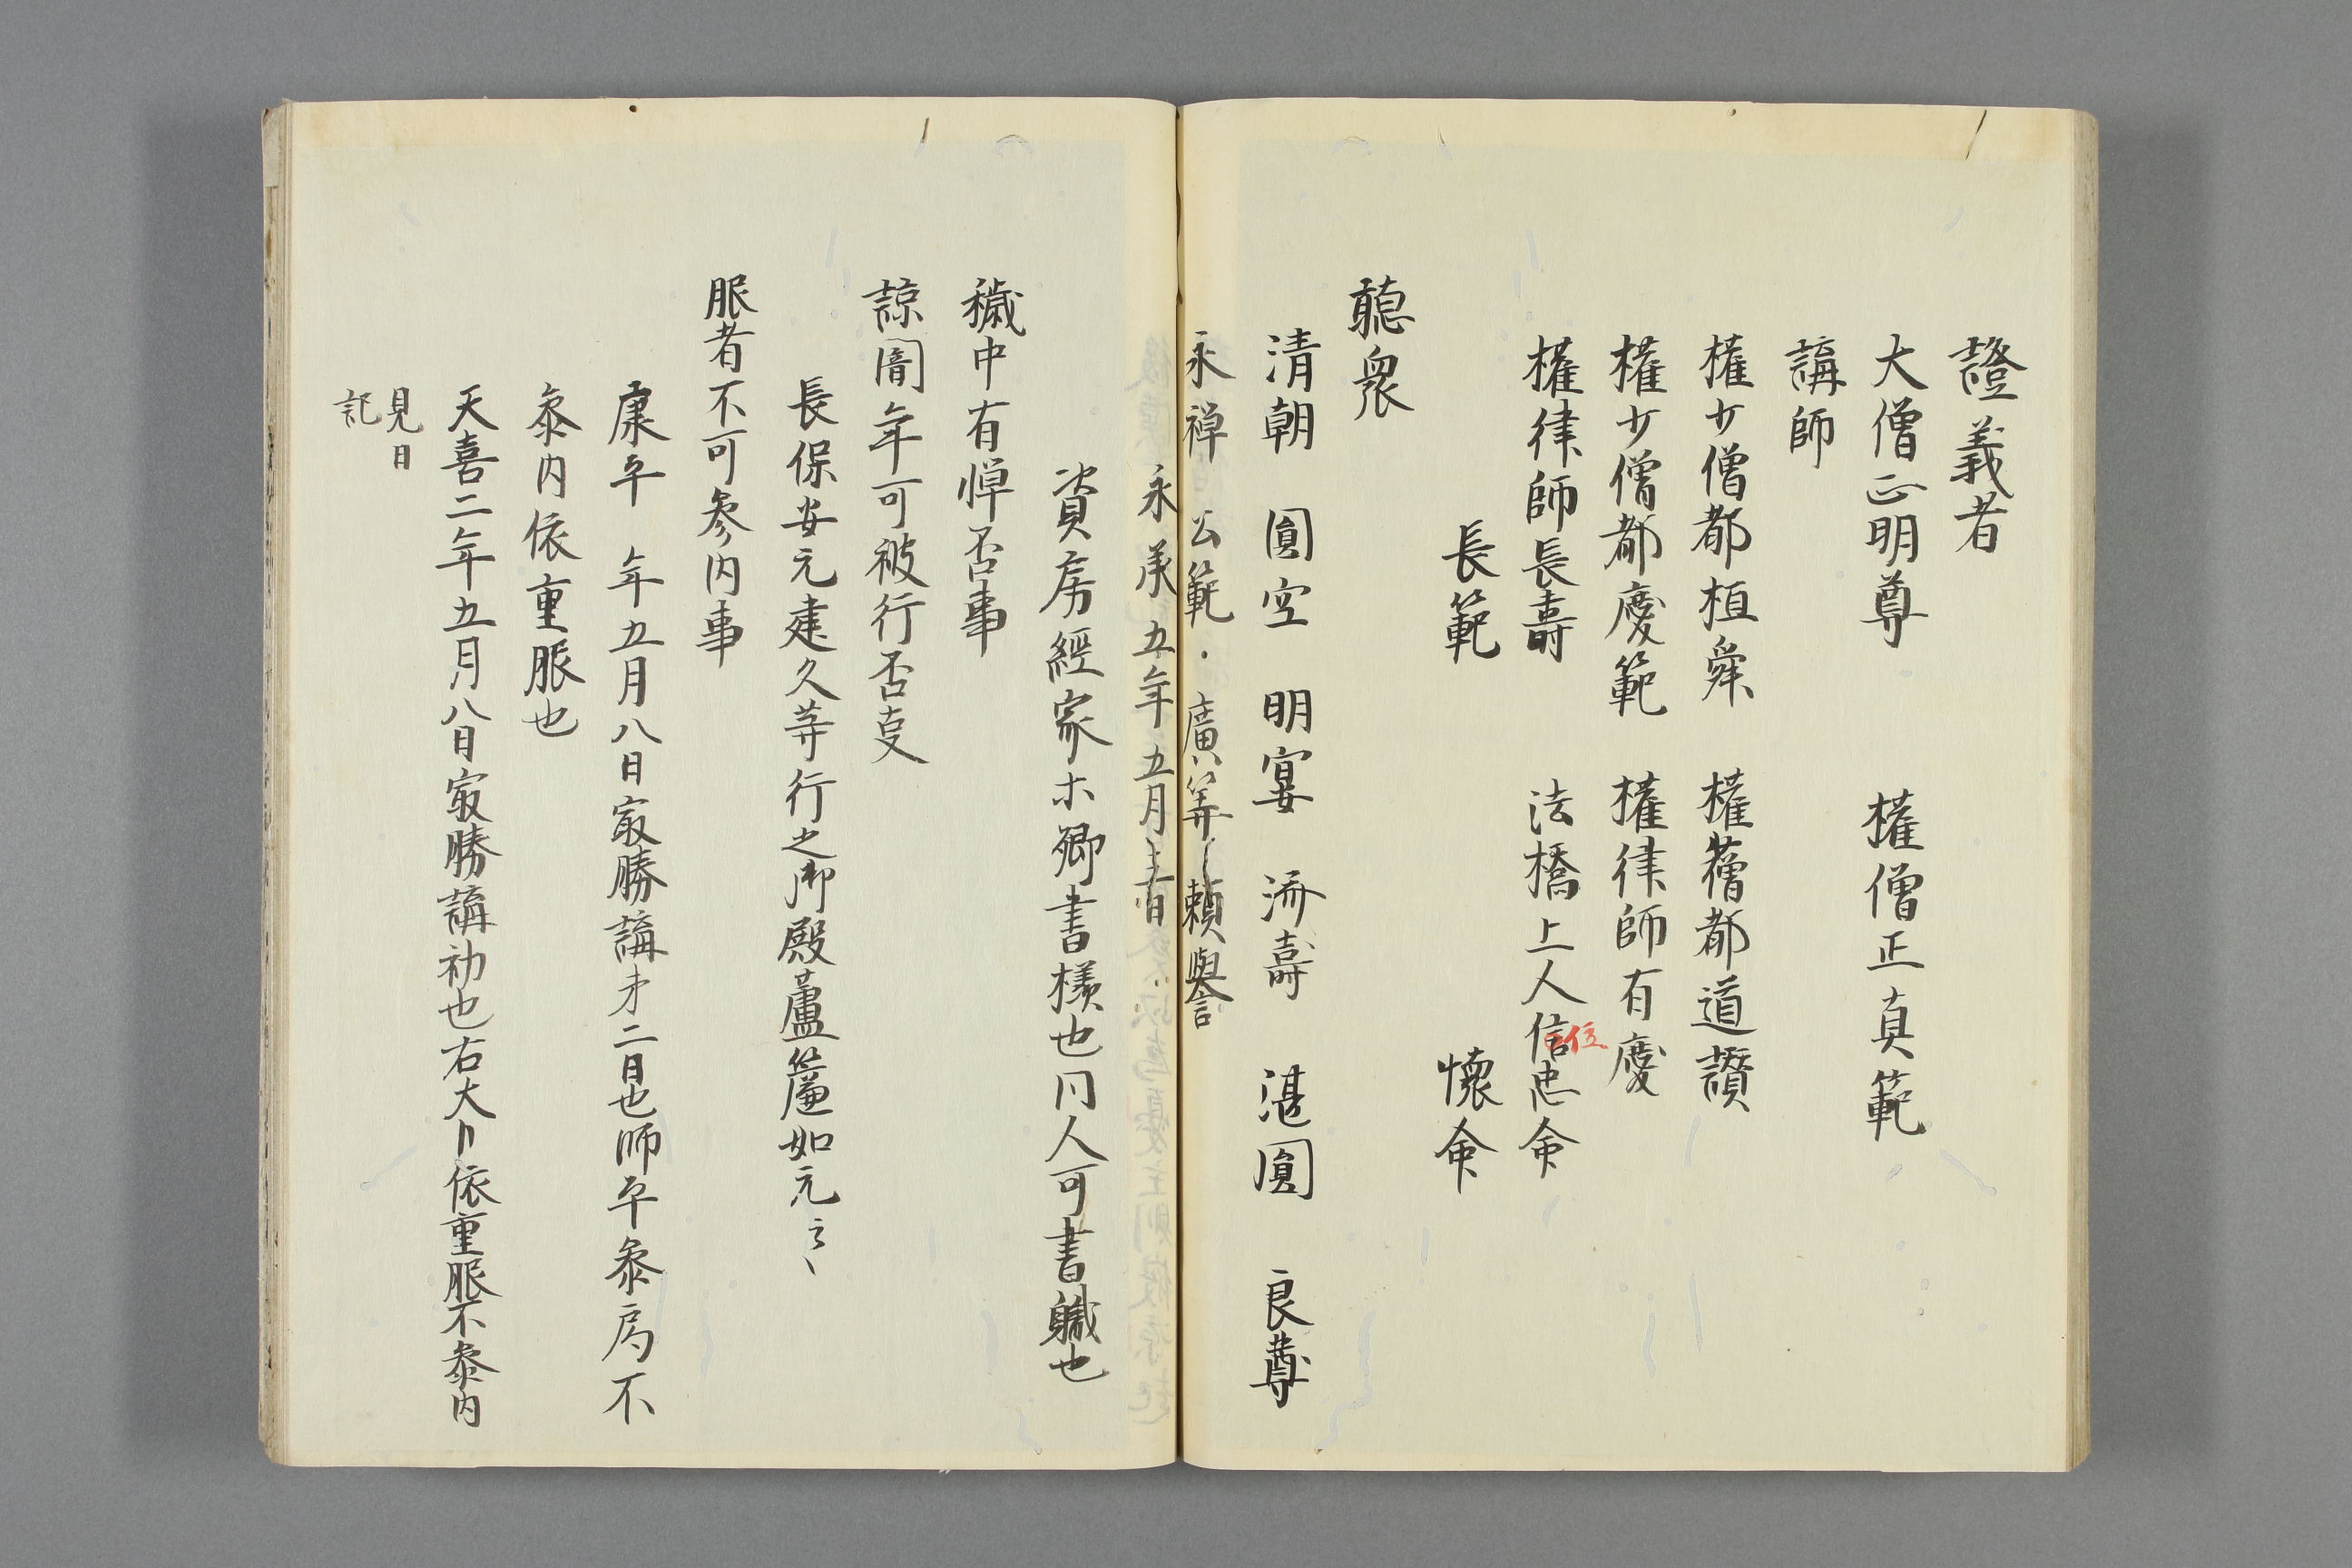 證義者
大僧正明尊　權僧正真範
講師
權少僧都桓舜　權少僧都道讚
權少僧都慶範　權律師有慶
權律師長壽　法橋上人信忠命
位
長範　懷命
聽衆
清朝　圓空　明宴　済壽　湛圓　良尊
永禅　公範・廣筭　頼與言
永承五年五月
資房經家木卿書樣也同人可書軄也
穢中有憚否事
諒闇年可被行否叓
長保安元建久等行之御殿蘆簾如元云々
服者不可參内事
康平　年五月八日㝡勝講第二日也師平叅扄不
叅内依重服也
天喜二年五月八日㝡勝講初也右大卩依重服不叅内
見日
記